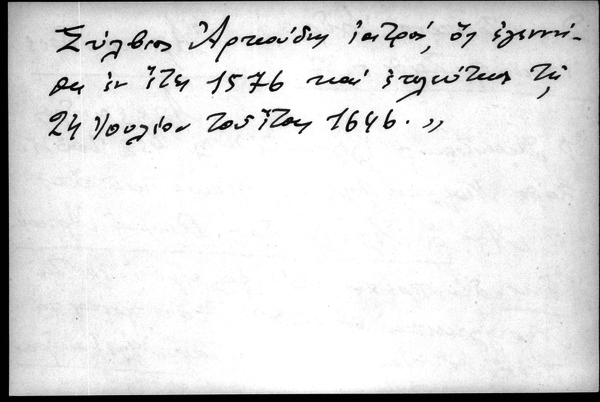 Σύλβιος Ἀρκούδης ἰατρός, ὃς ἐγεννή-
θη ἐν ἔτει 1576 καὶ ἐτελεύτησε τῇ
24 Ἰουλίου τοῦ ἔτους 1646. „